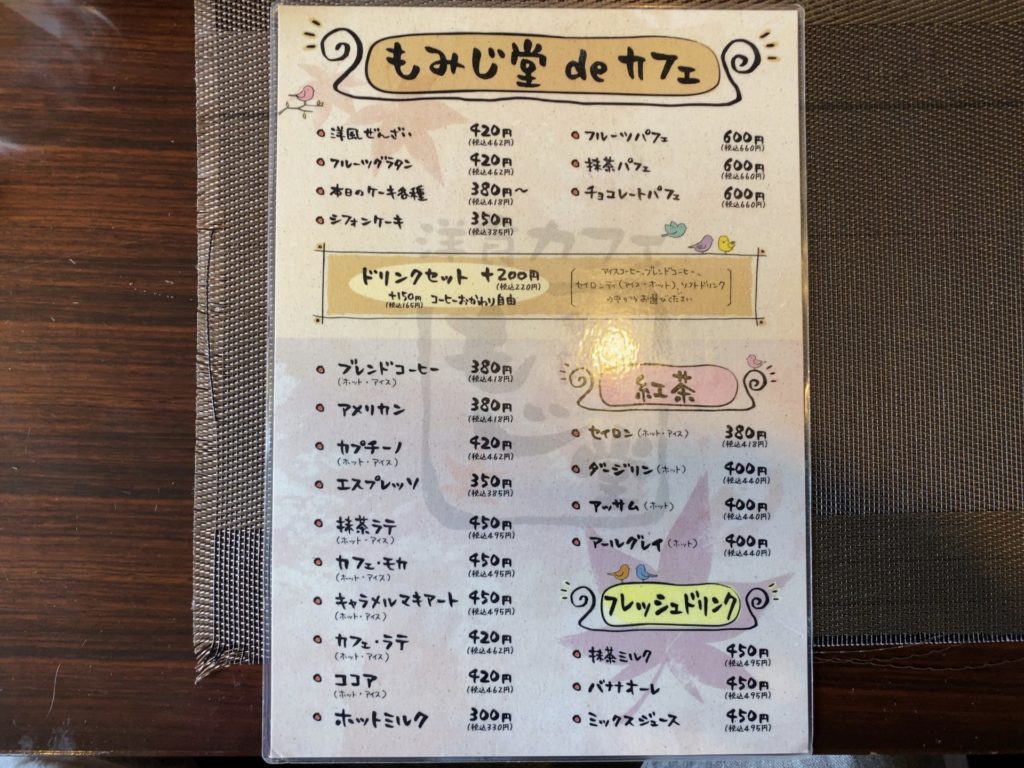 もみじ堂 de カフェ
洋風ぜんざい 420円
(税込462円)
フルーツグラタン 420円
(税込462円)
本日のケーキ各種 380円〜
(税込418円)
シフォンケーキ 350円
(税込385円)
フルーツパフェ 600円
(税込660円)
抹茶パフェ 600円
(税込660円)
チョコレートパフェ 600円
(税込660円)
ドリンクセット +200円
(税込220円)
+150円 コーヒーおかわり自由
(税込165円)
アイスコーヒー、ブレンドコーヒー、
セイロンティ(アイス・ホット)、ソフトドリンク
の中からお選びください
ブレンドコーヒー 380円
(ホット・アイス) (税込418円)
アメリカン 380円
(税込418円)
カプチーノ 420円
(ホット・アイス) (税込462円)
エスプレッソ 350円
(税込385円)
抹茶ラテ 450円
(ホット・アイス) (税込495円)
カフェ・モカ 450円
(ホット・アイス) (税込495円)
キャラメルマキアート 450円
(ホット・アイス) (税込495円)
カフェ・ラテ 420円
(ホット・アイス) (税込462円)
ココア 420円
(ホット・アイス) (税込462円)
ホットミルク 300円
(税込330円)
紅茶
セイロン(ホット・アイス) 380円
(税込418円)
ダージリン(ホット) 400円
(税込440円)
アッサム(ホット) 400円
(税込440円)
アールグレイ(ホット) 400円
(税込440円)
フレッシュドリンク
抹茶ミルク 450円
(税込495円)
バナナオーレ 450円
(税込495円)
ミックスジュース 450円
(税込495円)